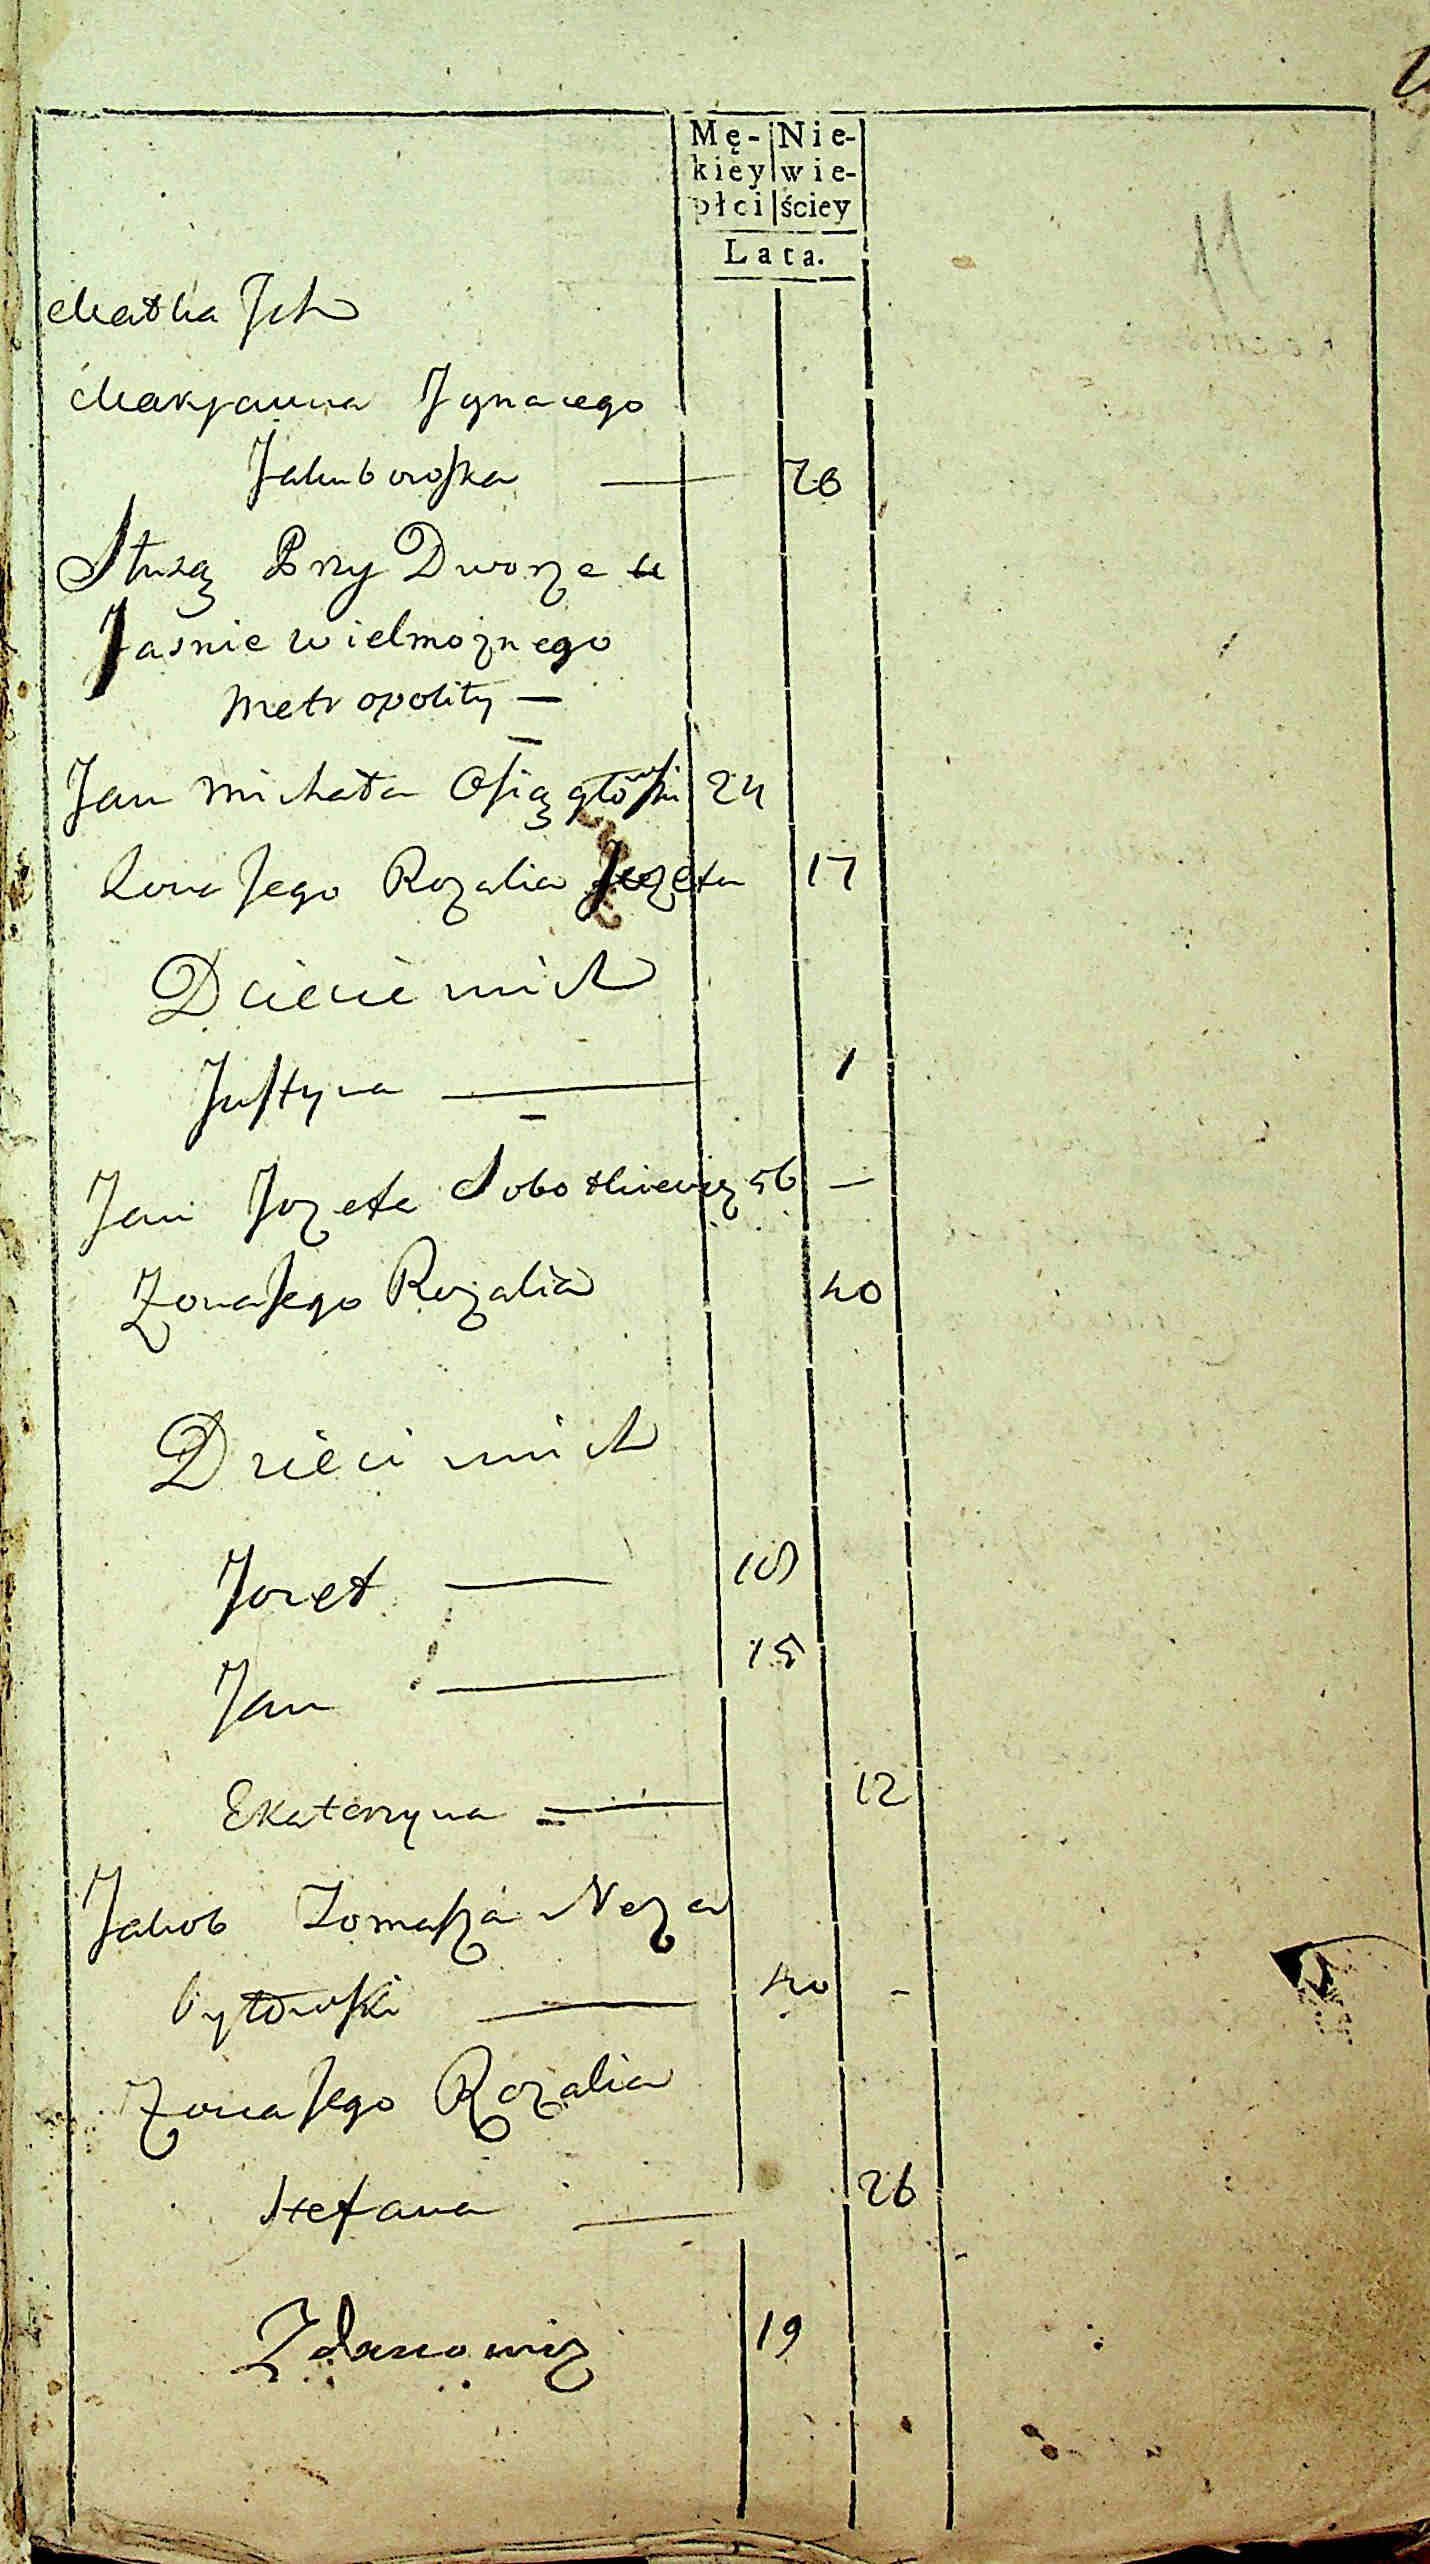 Mę- Nie-
kiey wie-
płci ściey
Lata.
Matka Ich
Maryanna Jgnacego
Jakubowska — 70
Służą Przy Dworze u
Jasnie wielmożnego
Metropolity —
Jan Michała Osięgłowski 24
Zona Jego Rozalia Jozefa 17
Dziecie mich
Justyna — 1
Jan Jozefa Sobotkiewicz 56 —
Zona Jego Rozalia 40
Dzieci mich
Jozef — 18
Jan — 15
Ekaterzyna — 12
Jakob Tomasza Neza
bytowski — 40 -
Zona Jego Rozalia
Stefana — 26
Zdanowicz 19